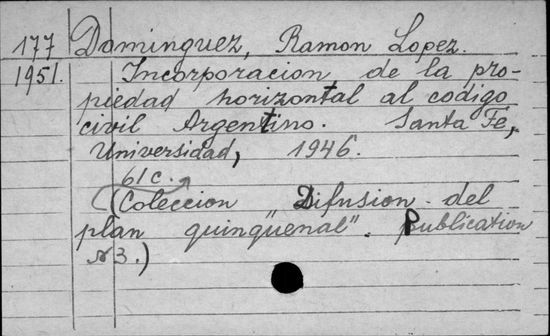 177 Dominguez, Ramon Lopez.
1951. Incorporacion de la pro-
piedad horizontal al codigo
civil Argentino. Santa Fé,
Universidad, 1946.
61 c.
(Coleccion "Difusion del
plan quinquenal". Publication
N3.)